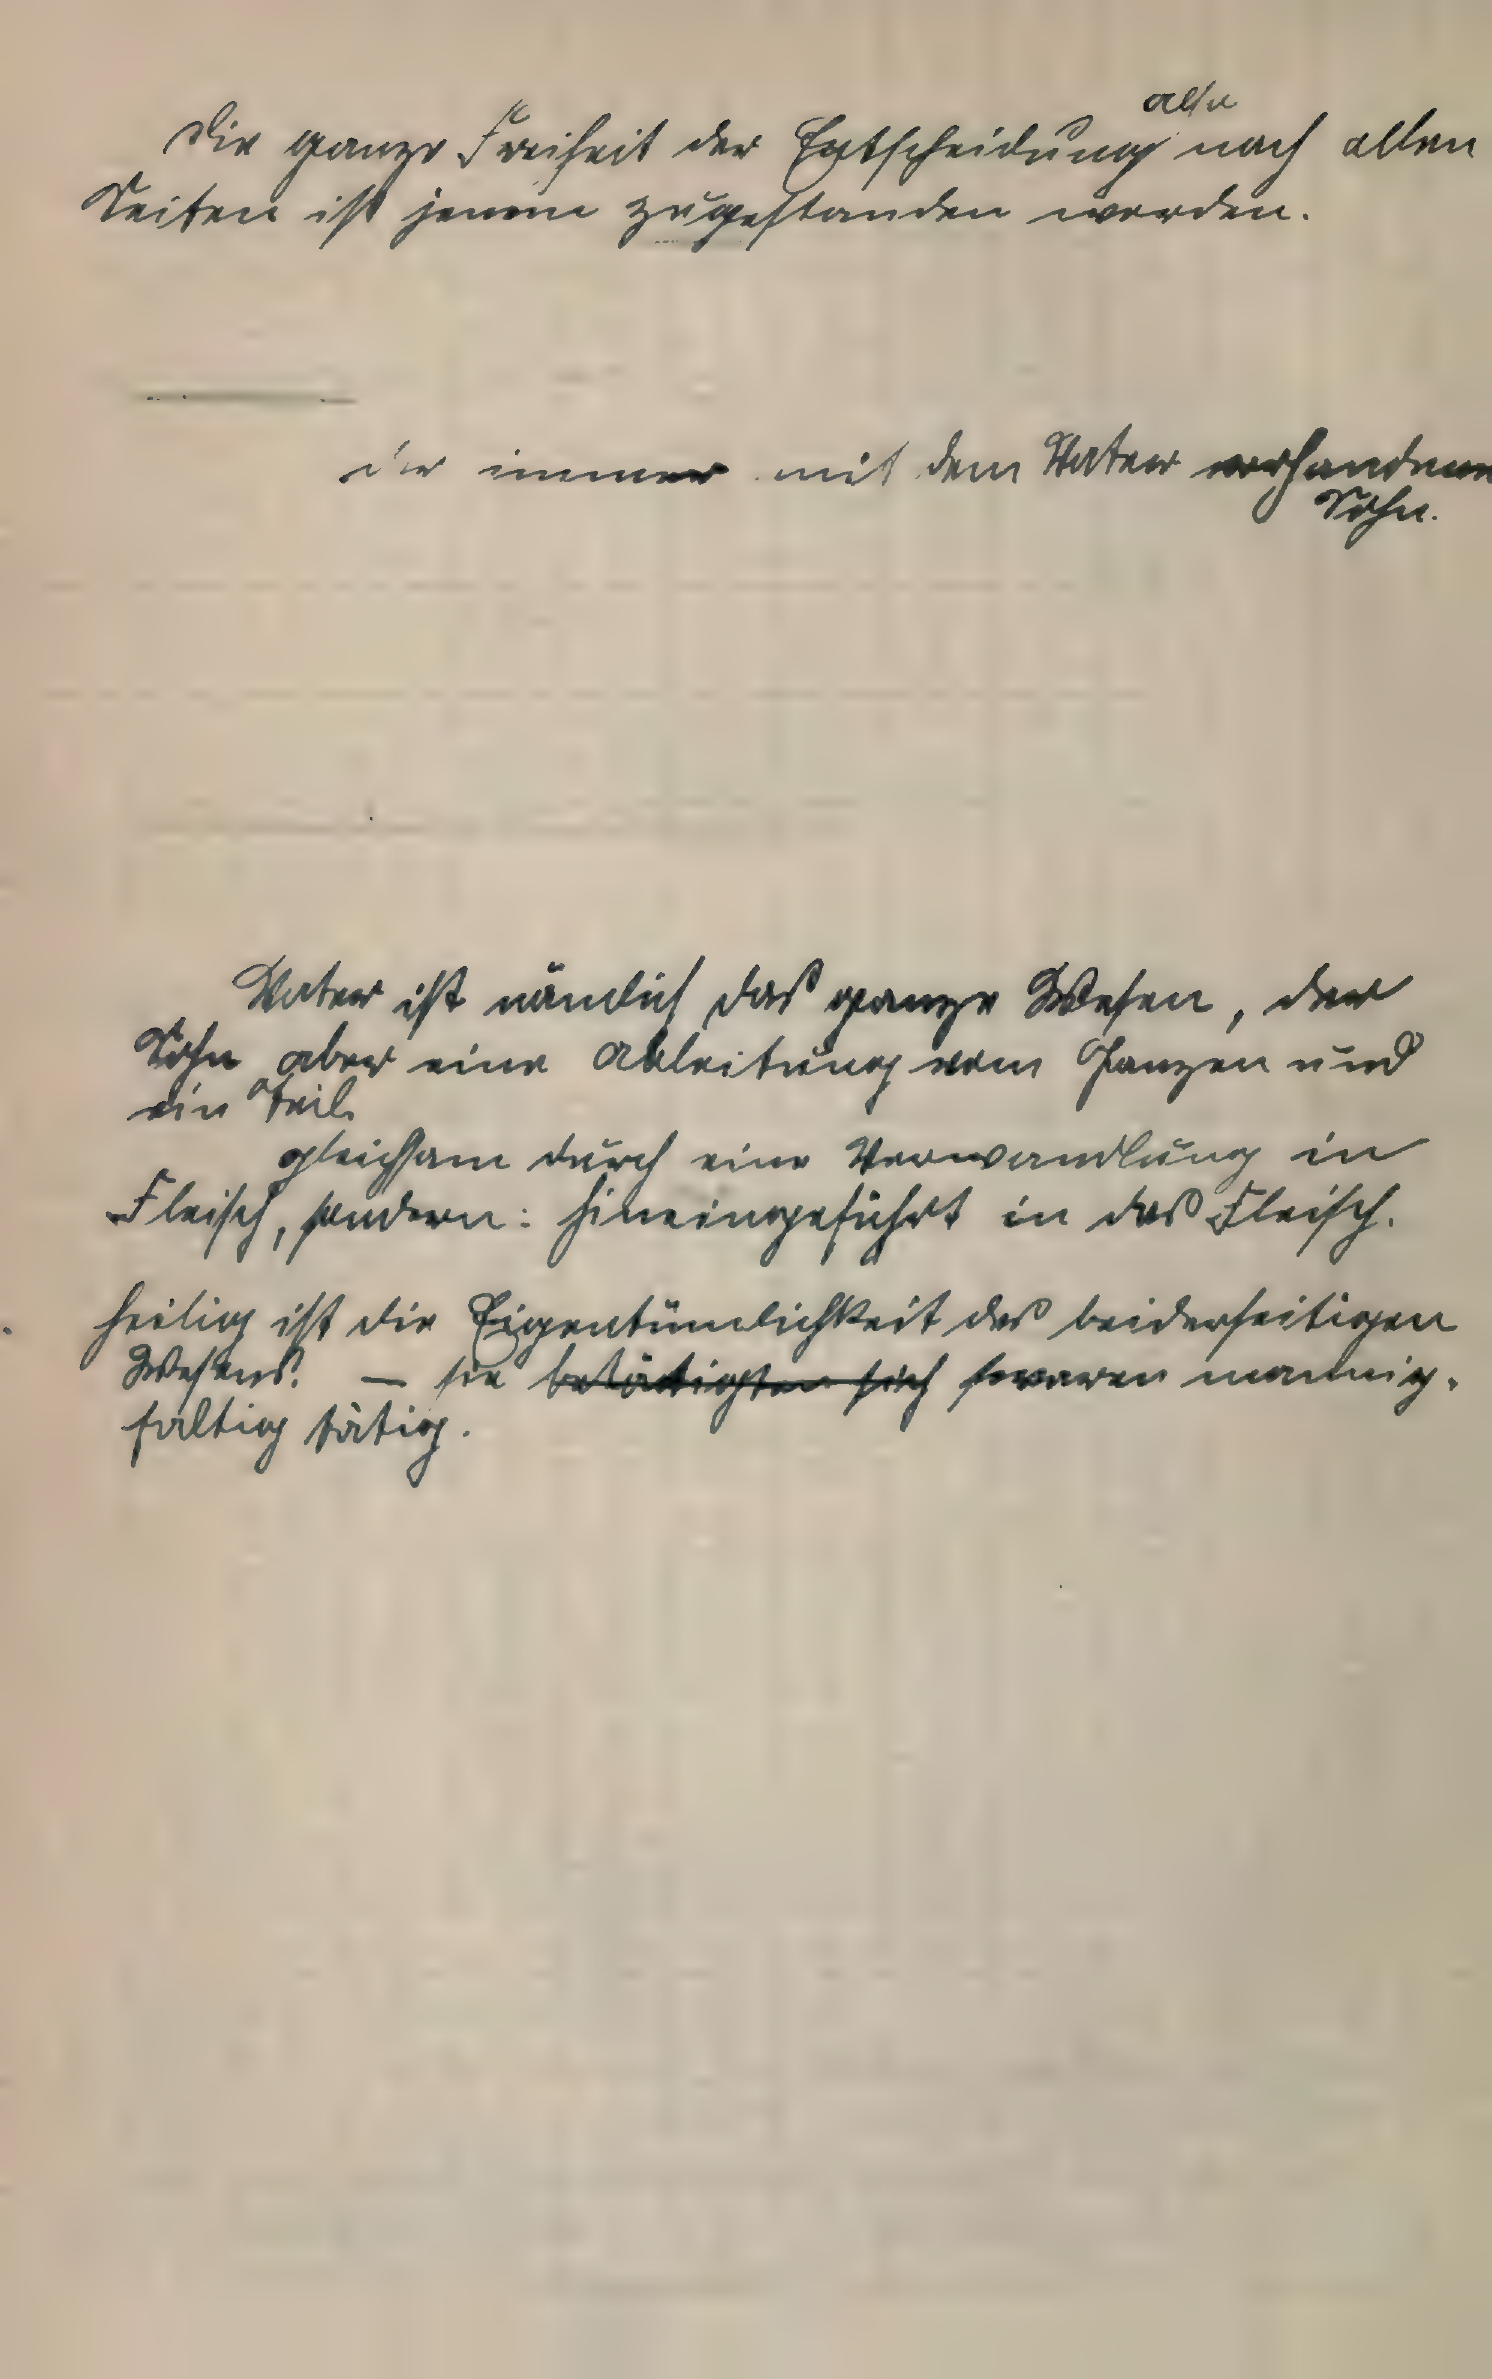 also
Die ganze Freiheit der Entscheidung nach allen
Seiten ist jenem zugestanden worden.
der immer mit dem Vater vorhandene
Sohn.
Vater ist nämlich das ganze Wesen, der
Sohn aber eine Ableitung vom Ganzen und
ein Teil.
gleichsam durch eine Verwandlung in
Fleisch, sondern: hineingeführt in das Fleisch.
heilig ist die Eigentümlichkeit des beiderseitigen
Wesens. — sie betätigten sich waren mannig-
faltig tätig.